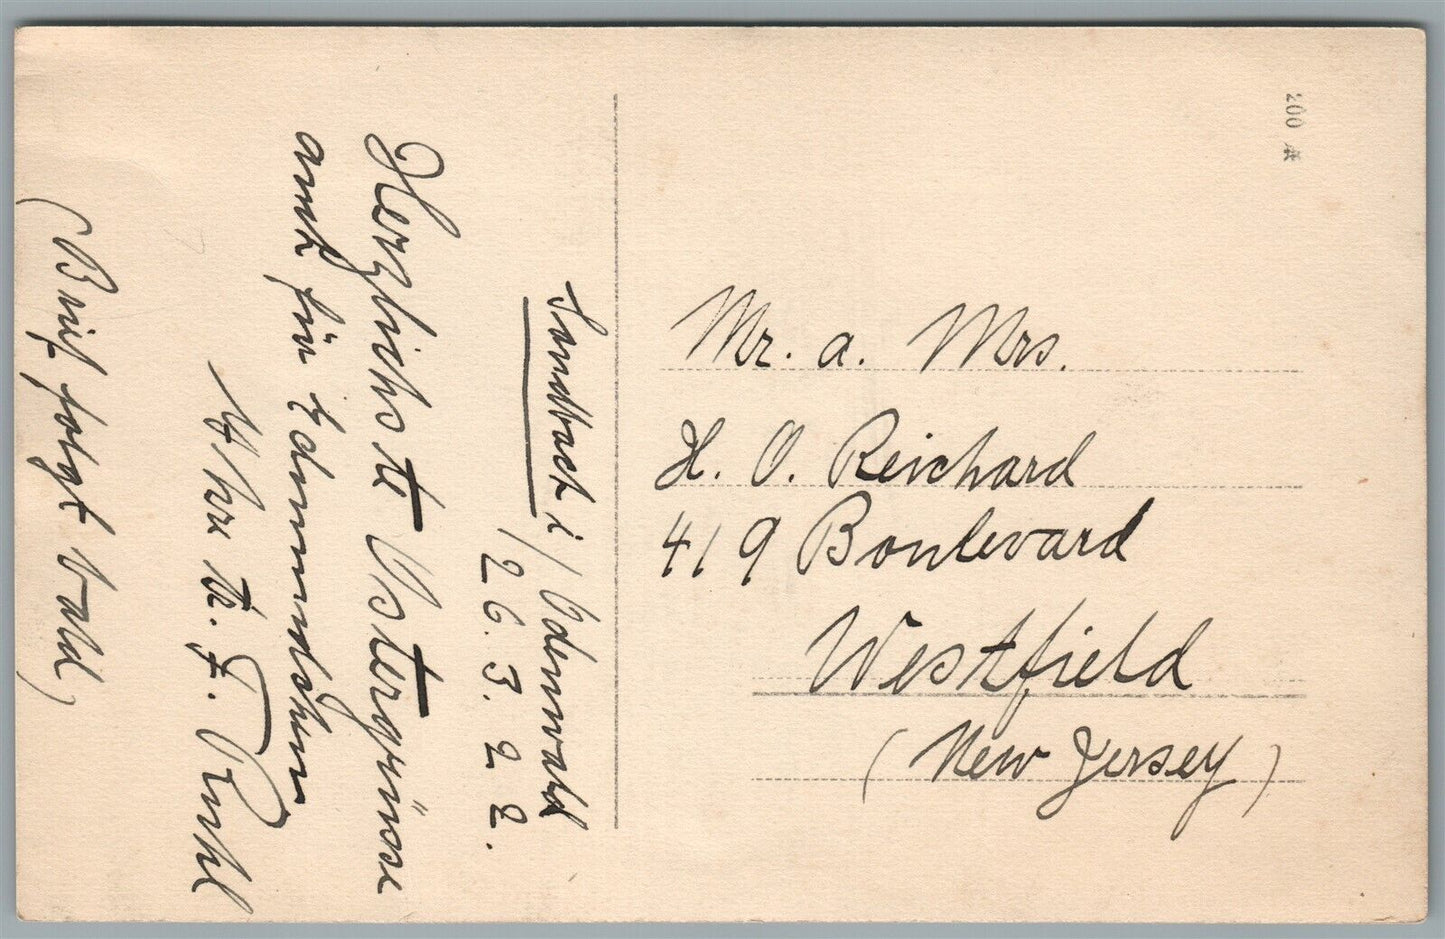 Sandbach i/ Odenwald
26. 3. 22.
Herzlichste Ostergrüsse
auch für
Ihre
(Brief folgt bald)
200 *
Mr. a. Mrs.
H. O. Reichard
419 Boulevard
Westfield
(New Jersey)